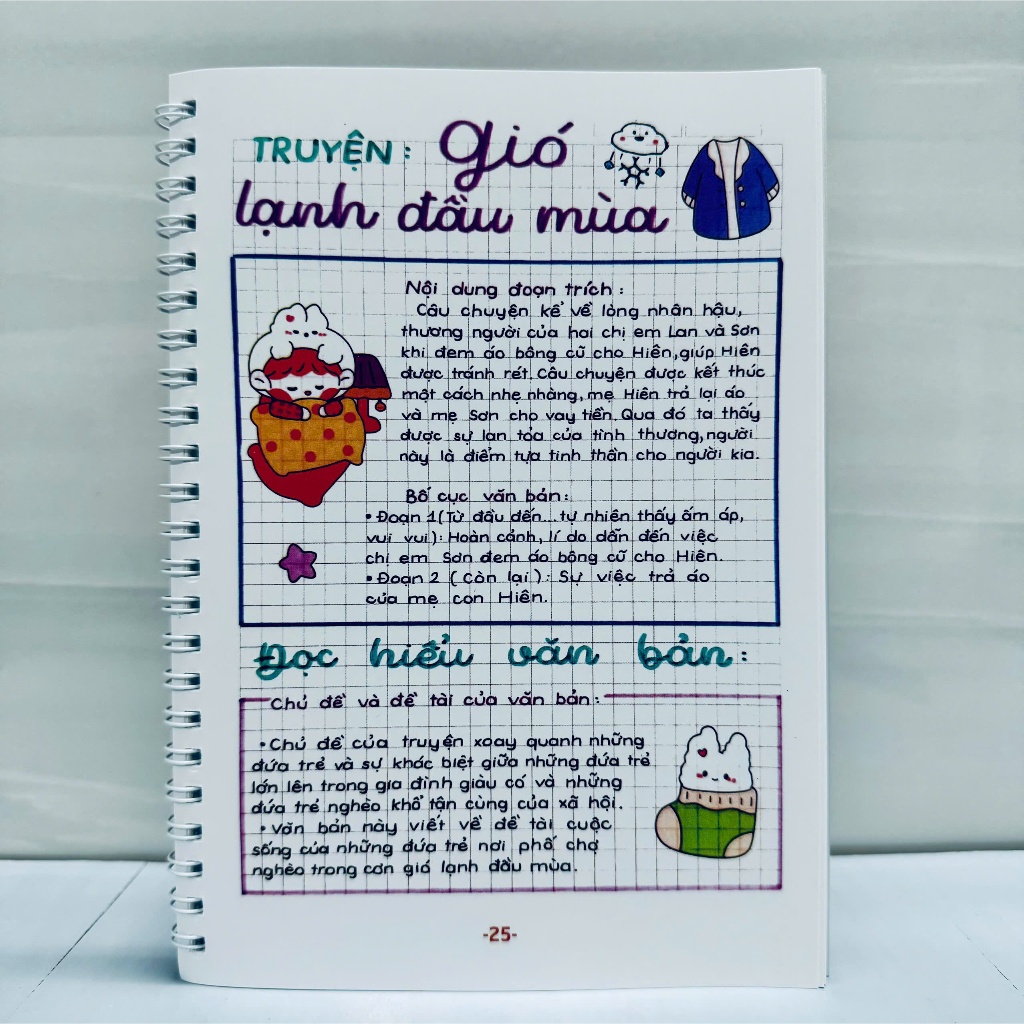 TRUYỆN: gió
lạnh đầu mùa
Nội dung đoạn trích:
Câu chuyện kể về lòng nhân hậu,
thương người của hai chị em Lan và Sơn
khi đem áo bông cũ cho Hiên, giúp Hiên
được tránh rét. Câu chuyện được kết thúc
một cách nhẹ nhàng, mẹ Hiên trả lại áo
và mẹ Sơn cho vay tiền. Qua đó ta thấy
được sự lan tỏa của tình thương, người
này là điểm tựa tinh thần cho người kia.
Bố cục văn bản:
• Đoạn 1 (Từ đầu đến... tự nhiên thấy ấm áp,
vui vui): Hoàn cảnh, lí do dẫn đến việc
chị em Sơn đem áo bông cũ cho Hiên.
• Đoạn 2 (Còn lại): Sự việc trả áo
của mẹ con Hiên.
Đọc hiểu văn bản:
Chủ đề và đề tài của văn bản:
• Chủ đề của truyện xoay quanh những
đứa trẻ và sự khác biệt giữa những đứa trẻ
lớn lên trong gia đình giàu có và những
đứa trẻ nghèo khổ tận cùng của xã hội.
• Văn bản này viết về đề tài cuộc
sống của những đứa trẻ nơi phố chợ
nghèo trong cơn gió lạnh đầu mùa.
-25-